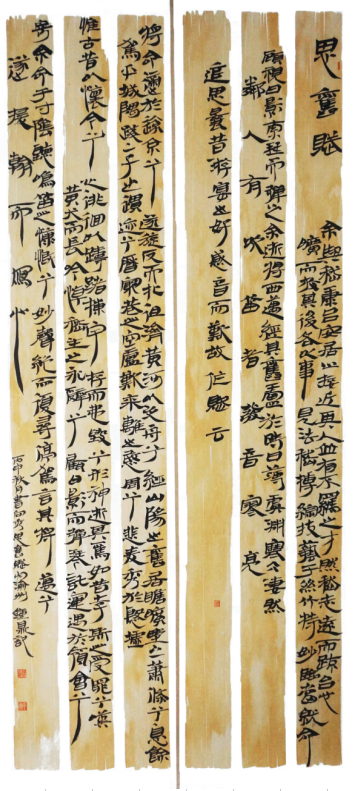 思舊賦
余與嵇康呂安居止接近其人並有不羈之才然嵇志遠而疏呂心
曠而放其後各以事見法嵇博綜技藝于絲竹特妙臨當就命
顧視日影索琴而彈之余逝將西邁經其舊廬於時日薄虞淵寒冰淒然
鄰人有吹笛者發音寥亮
追思曩昔遊宴之好感音而歎故作賦云
將命適於遠京兮遂旋反而北徂濟黃河以泛舟兮經山陽之舊居瞻曠野之蕭條兮息余
駕乎城隅踐二子之遺跡兮歷窮巷之空廬歎黍離之愍周兮悲麥秀於殷墟
惟古昔以懷今兮心徘徊以躊躇棟宇存而弗毀兮形神逝其焉如昔李斯之受罪兮歎
黃犬而長吟悼嵇生之永辭兮顧日影而彈琴託運遇於領會兮
寄余命于寸陰聽鳴笛之慷慨兮妙聲絕而復尋停駕言其將邁兮
遂援翰而寫心
丙申秋月書向秀思舊賦